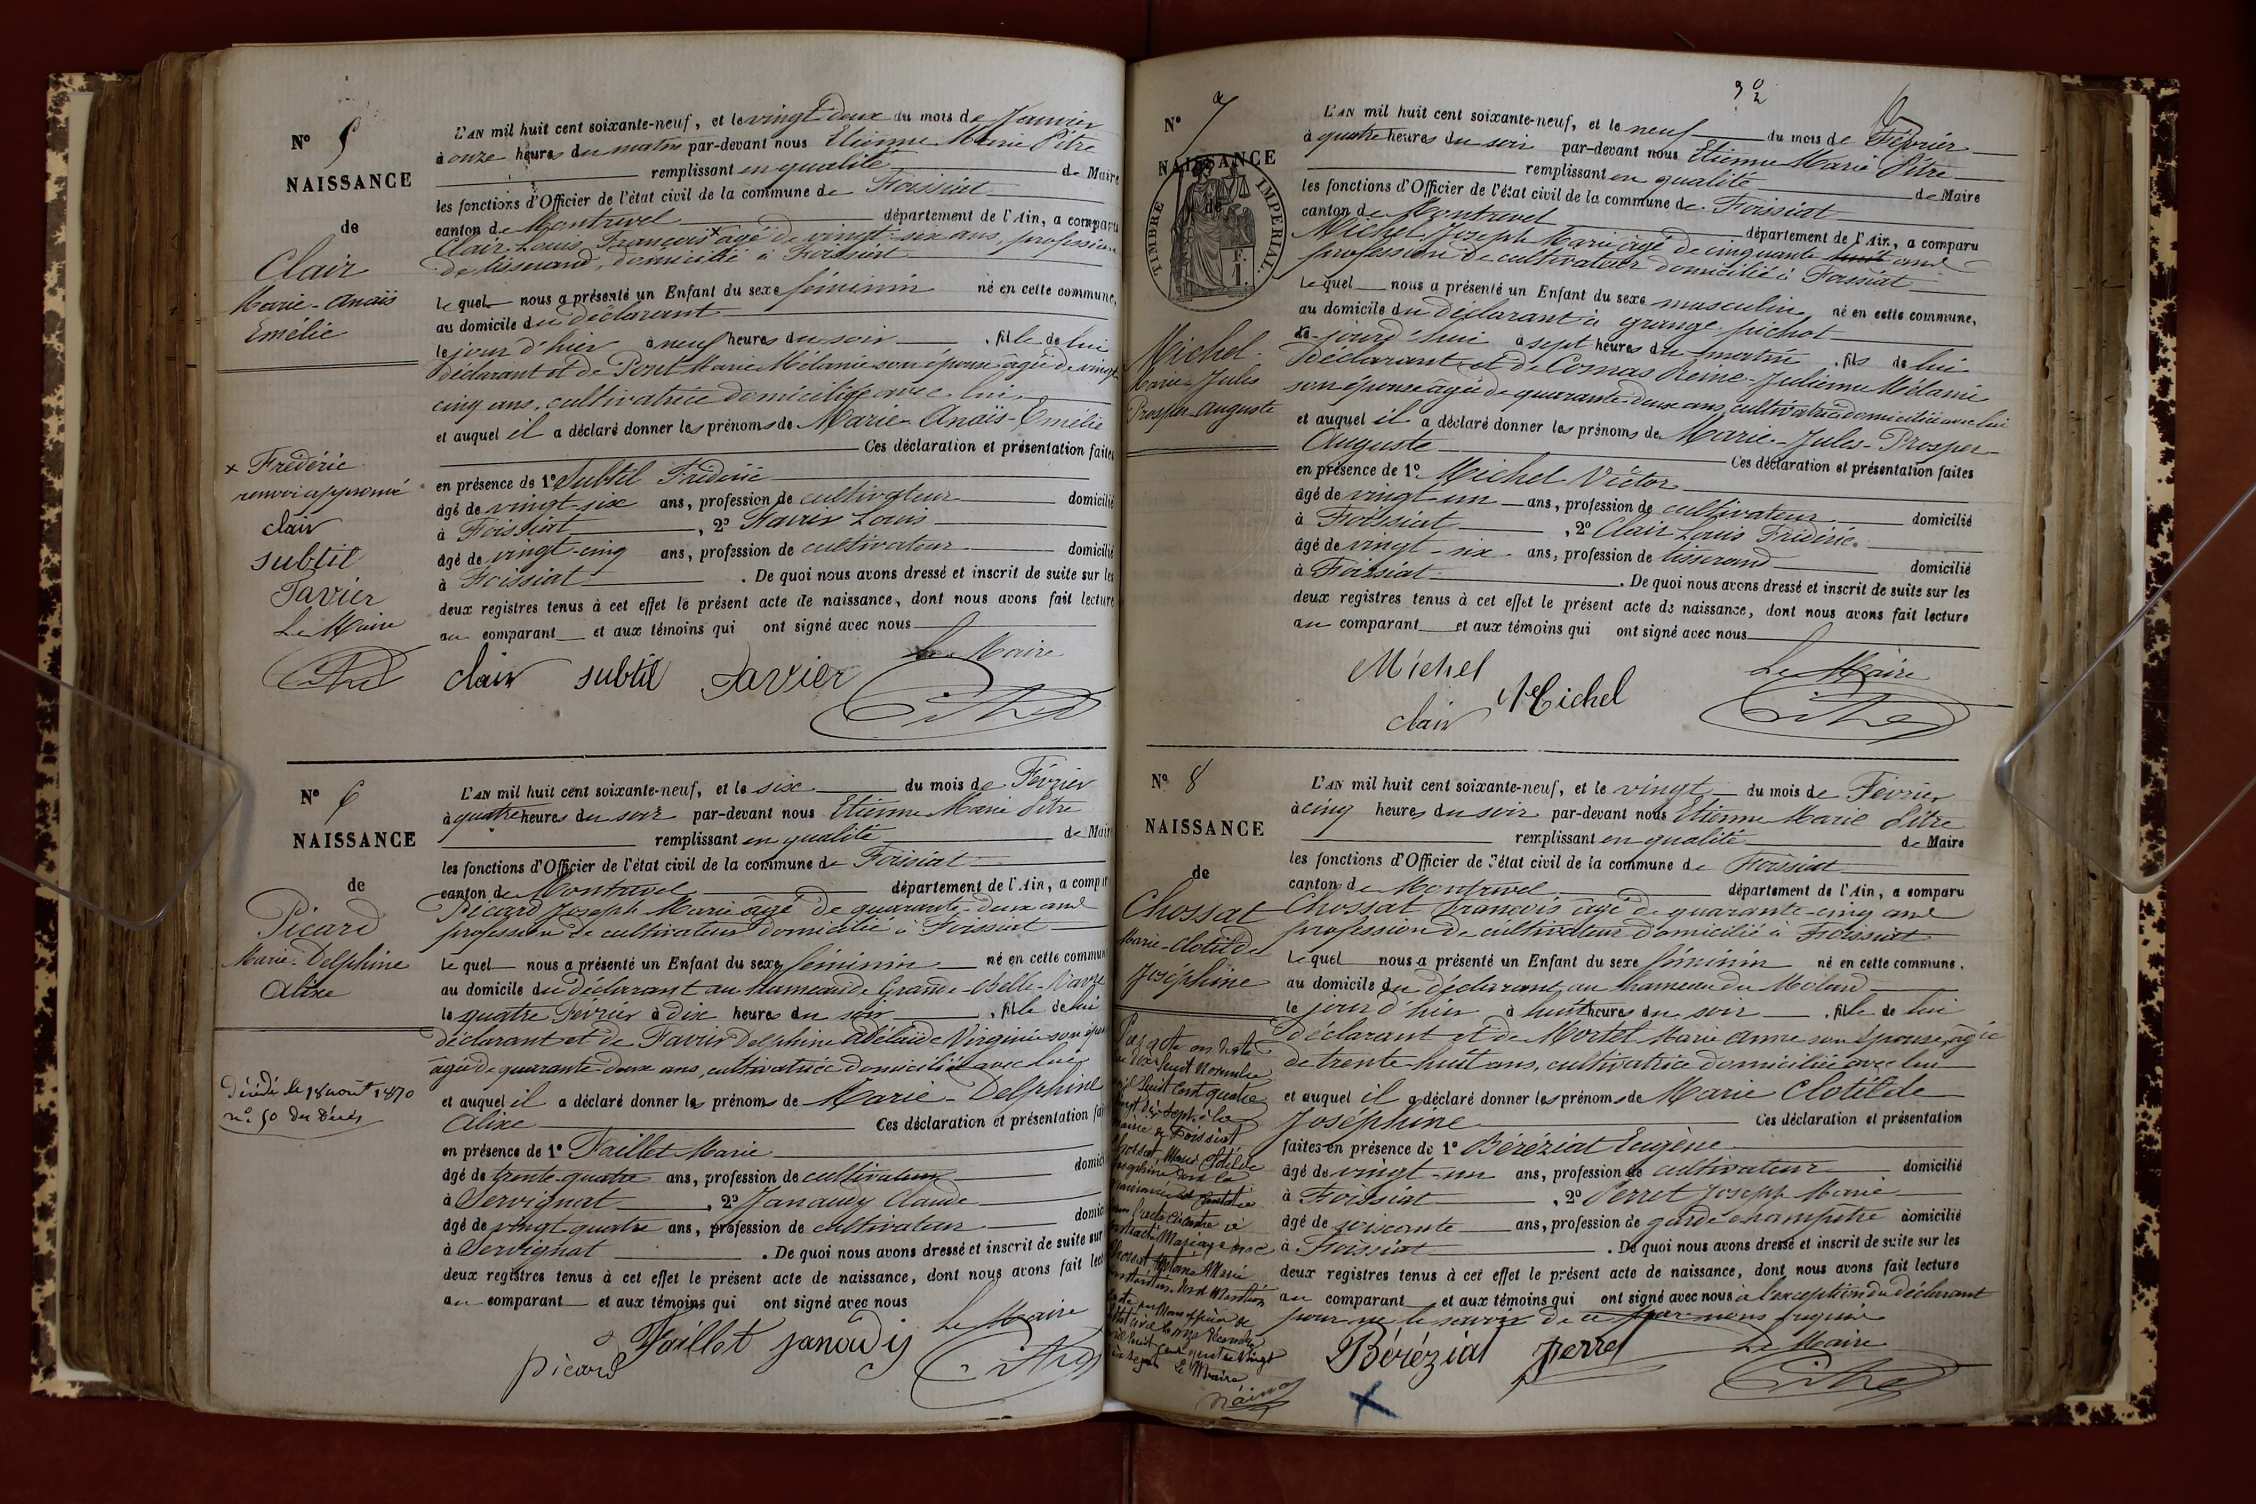 N° 5
NAISSANCE
de
Clair
Marie-Anaïs
Emélie
x Frédéric
renvoi approuvé
clair
subtil
Favier
Le Maire
Pitre
L'AN mil huit cent soixante-neuf, et le vingt deux du mois de Janvier
à onze heures du matin par-devant nous Etienne Marie Pitre
remplissant en qualité de Maire
les fonctions d'Officier de l'état civil de la commune de Foissiat
canton de Montrevel département de l'Ain, a comparu
Clair Louis François x âgé de vingt-six ans, profession
de tisserand, domicilié à Foissiat
Lequel nous a présenté un Enfant du sexe féminin né en cette commune,
au domicile du déclarant
le jour d'hier à neuf heures du soir, fille de lui
déclarant et de Marie Mélanie son épouse âgée de vingt
cinq ans, cultivatrice domiciliée avec lui
et auquel il a déclaré donner les prénoms de Marie-Anaïs-Emélie
Ces déclaration et présentation faites
en présence de 1° Subtil Frédéric
âgé de vingt-six ans, profession de cultivateur domicilié
à Foissiat, 2° Favier Louis
âgé de vingt-cinq ans, profession de cultivateur domicilié
à Foissiat. De quoi nous avons dressé et inscrit de suite sur les
deux registres tenus à cet effet le présent acte de naissance, dont nous avons fait lecture
au comparant et aux témoins qui ont signé avec nous
Le Maire
clair subtil Favier Pitre
N° 6
NAISSANCE
de
Picard
Marie-Delphine
Alixe
Décédé le 18 août 1870
n° 50 des Décès
L'AN mil huit cent soixante-neuf, et le six du mois de Février
à quatre heures du soir par-devant nous Etienne Marie Pitre
remplissant en qualité de Maire
les fonctions d'Officier de l'état civil de la commune de Foissiat
canton de Montrevel département de l'Ain, a compar
Picard Joseph Marie âgé de quarante-deux ans
profession de cultivateur domicilié à Foissiat
Lequel nous a présenté un Enfant du sexe féminin né en cette commun
au domicile du déclarant au hameau de Grande
le quatre Février à dix heures du soir, fille de lui
déclarant et de Favier Delphine Adélaïde Virginie son épou
âgée de quarante-deux ans, cultivatrice domiciliée avec lui
et auquel il a déclaré donner les prénoms de Marie-Delphine
Alixe Ces déclaration et présentation fai
en présence de 1° Faillet Marie
âgé de trente-quatre ans, profession de cultivateur domici
à Servignat, 2° Janaudy Claude
âgé de vingt-quatre ans, profession de cultivateur domici
à Servignat. De quoi nous avons dressé et inscrit de suite sur
deux registres tenus à cet effet le présent acte de naissance, dont nous avons fait lect
au comparant et aux témoins qui ont signé avec nous
Le Maire
picard Faillet janaudy Pitre
N° 7
NAISSANCE
TIMBRE IMPERIAL
Michel
Marie-Jules
Prosper-Auguste
L'AN mil huit cent soixante-neuf, et le neuf du mois de Février
à quatre heures du soir par-devant nous Etienne Marie Pitre
remplissant en qualité de Maire
les fonctions d'Officier de l'état civil de la commune de Foissiat
canton de Montrevel département de l'Ain, a comparu
Michel Joseph Marie âgé de cinquante huit ans
profession de cultivateur domicilié à Foissiat
Lequel nous a présenté un Enfant du sexe masculin né en cette commune,
au domicile du déclarant à grange pichot
jourd'hui à sept heures du matin, fils de lui
déclarant et de Comas Reine-Julienne Mélanie
son épouse âgée de quarante-deux ans, cultivatrice domiciliée avec lui
et auquel il a déclaré donner les prénoms de Marie-Jules-Prosper
Auguste Ces déclaration et présentation faites
en présence de 1° Michel Victor
âgé de vingt un ans, profession de cultivateur domicilié
à Foissiat, 2° Clair Louis Frédéric
âgé de vingt-six ans, profession de tisserand domicilié
à Foissiat. De quoi nous avons dressé et inscrit de suite sur les
deux registres tenus à cet effet le présent acte de naissance, dont nous avons fait lecture
au comparant et aux témoins qui ont signé avec nous
Le Maire
Michel Michel clair Pitre
N° 8
NAISSANCE
de
Chossat
Marie-Clotilde
Joséphine
L'AN mil huit cent soixante-neuf, et le vingt du mois de Février
à cinq heures du soir par-devant nous Etienne Marie Pitre
remplissant en qualité de Maire
les fonctions d'Officier de l'état civil de la commune de Foissiat
canton de Montrevel département de l'Ain, a comparu
Chossat François âgé de quarante-cinq ans
profession de cultivateur domicilié à Foissiat
Lequel nous a présenté un Enfant du sexe féminin né en cette commune,
au domicile du déclarant au hameau du Molard
le jour d'hier à huit heures du soir, fille de lui
déclarant et de Mortel Marie Anne son épouse, âgée
de trente-huit ans, cultivatrice domiciliée avec lui
et auquel il a déclaré donner les prénoms de Marie Clotilde
Joséphine Ces déclaration et présentation
faites en présence de 1° Béréziat Eugène
âgé de vingt-un ans, profession de cultivateur domicilié
à Foissiat, 2° Perret Joseph Marie
âgé de soixante ans, profession de garde champêtre domicilié
à Foissiat. De quoi nous avons dressé et inscrit de suite sur les
deux registres tenus à cet effet le présent acte de naissance, dont nous avons fait lecture
au comparant et aux témoins qui ont signé avec nous à l'exception du déclarant
pour ne le savoir de ce par nous enquis
Le Maire
Béréziat perret Pitre